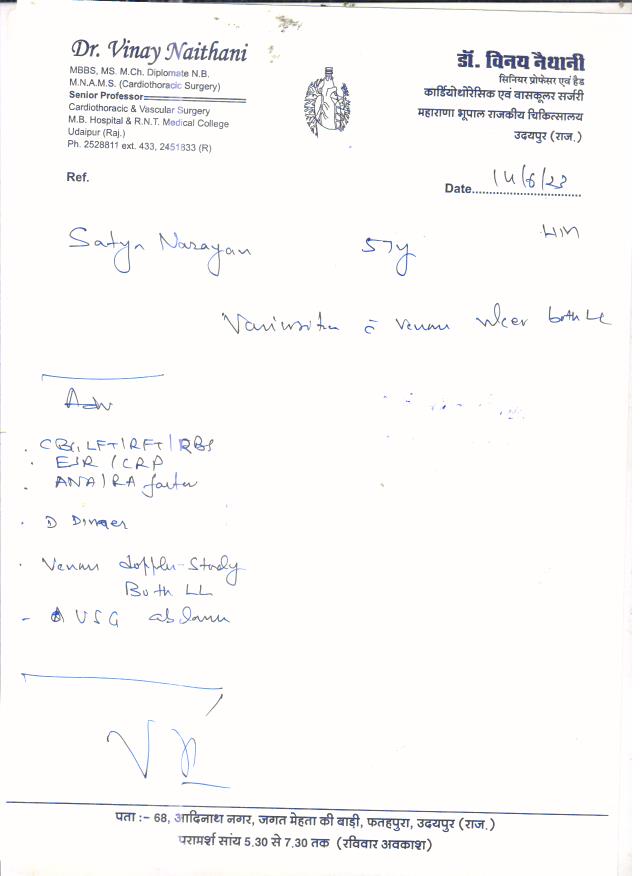 Dr. Vinay Naithani
MBBS, MS. M.Ch. Diplomate N.B.
M.N.A.M.S. (Cardiothoracic Surgery)
Senior Professor
Cardiothoracic & Vascular Surgery
M.B. Hospital & R.N.T. Medical College
Udaipur (Raj.)
Ph. 2528811 ext. 433, 2451833 (R)
डॉ. विनय नैथानी
सिनियर प्रोफेसर एवं हैड
कार्डियोथोरेसिक एवं वासकूलर सर्जरी
महाराणा भूपाल राजकीय चिकित्सालय
उदयपुर (राज.)
Ref.
Date 14/6/23
Satya Narayan 57y
ulcer both LL
Adv
CBC, LFT/RFT/RBS
ESR/CRP
ANA/RA factor
D Dimer
Venous doppler study
Both LL
USG abdomen
पता :- 68, आदिनाथ नगर, जगत मेहता की बाड़ी, फतहपुरा, उदयपुर (राज.)
परामर्श सांय 5.30 से 7.30 तक (रविवार अवकाश)